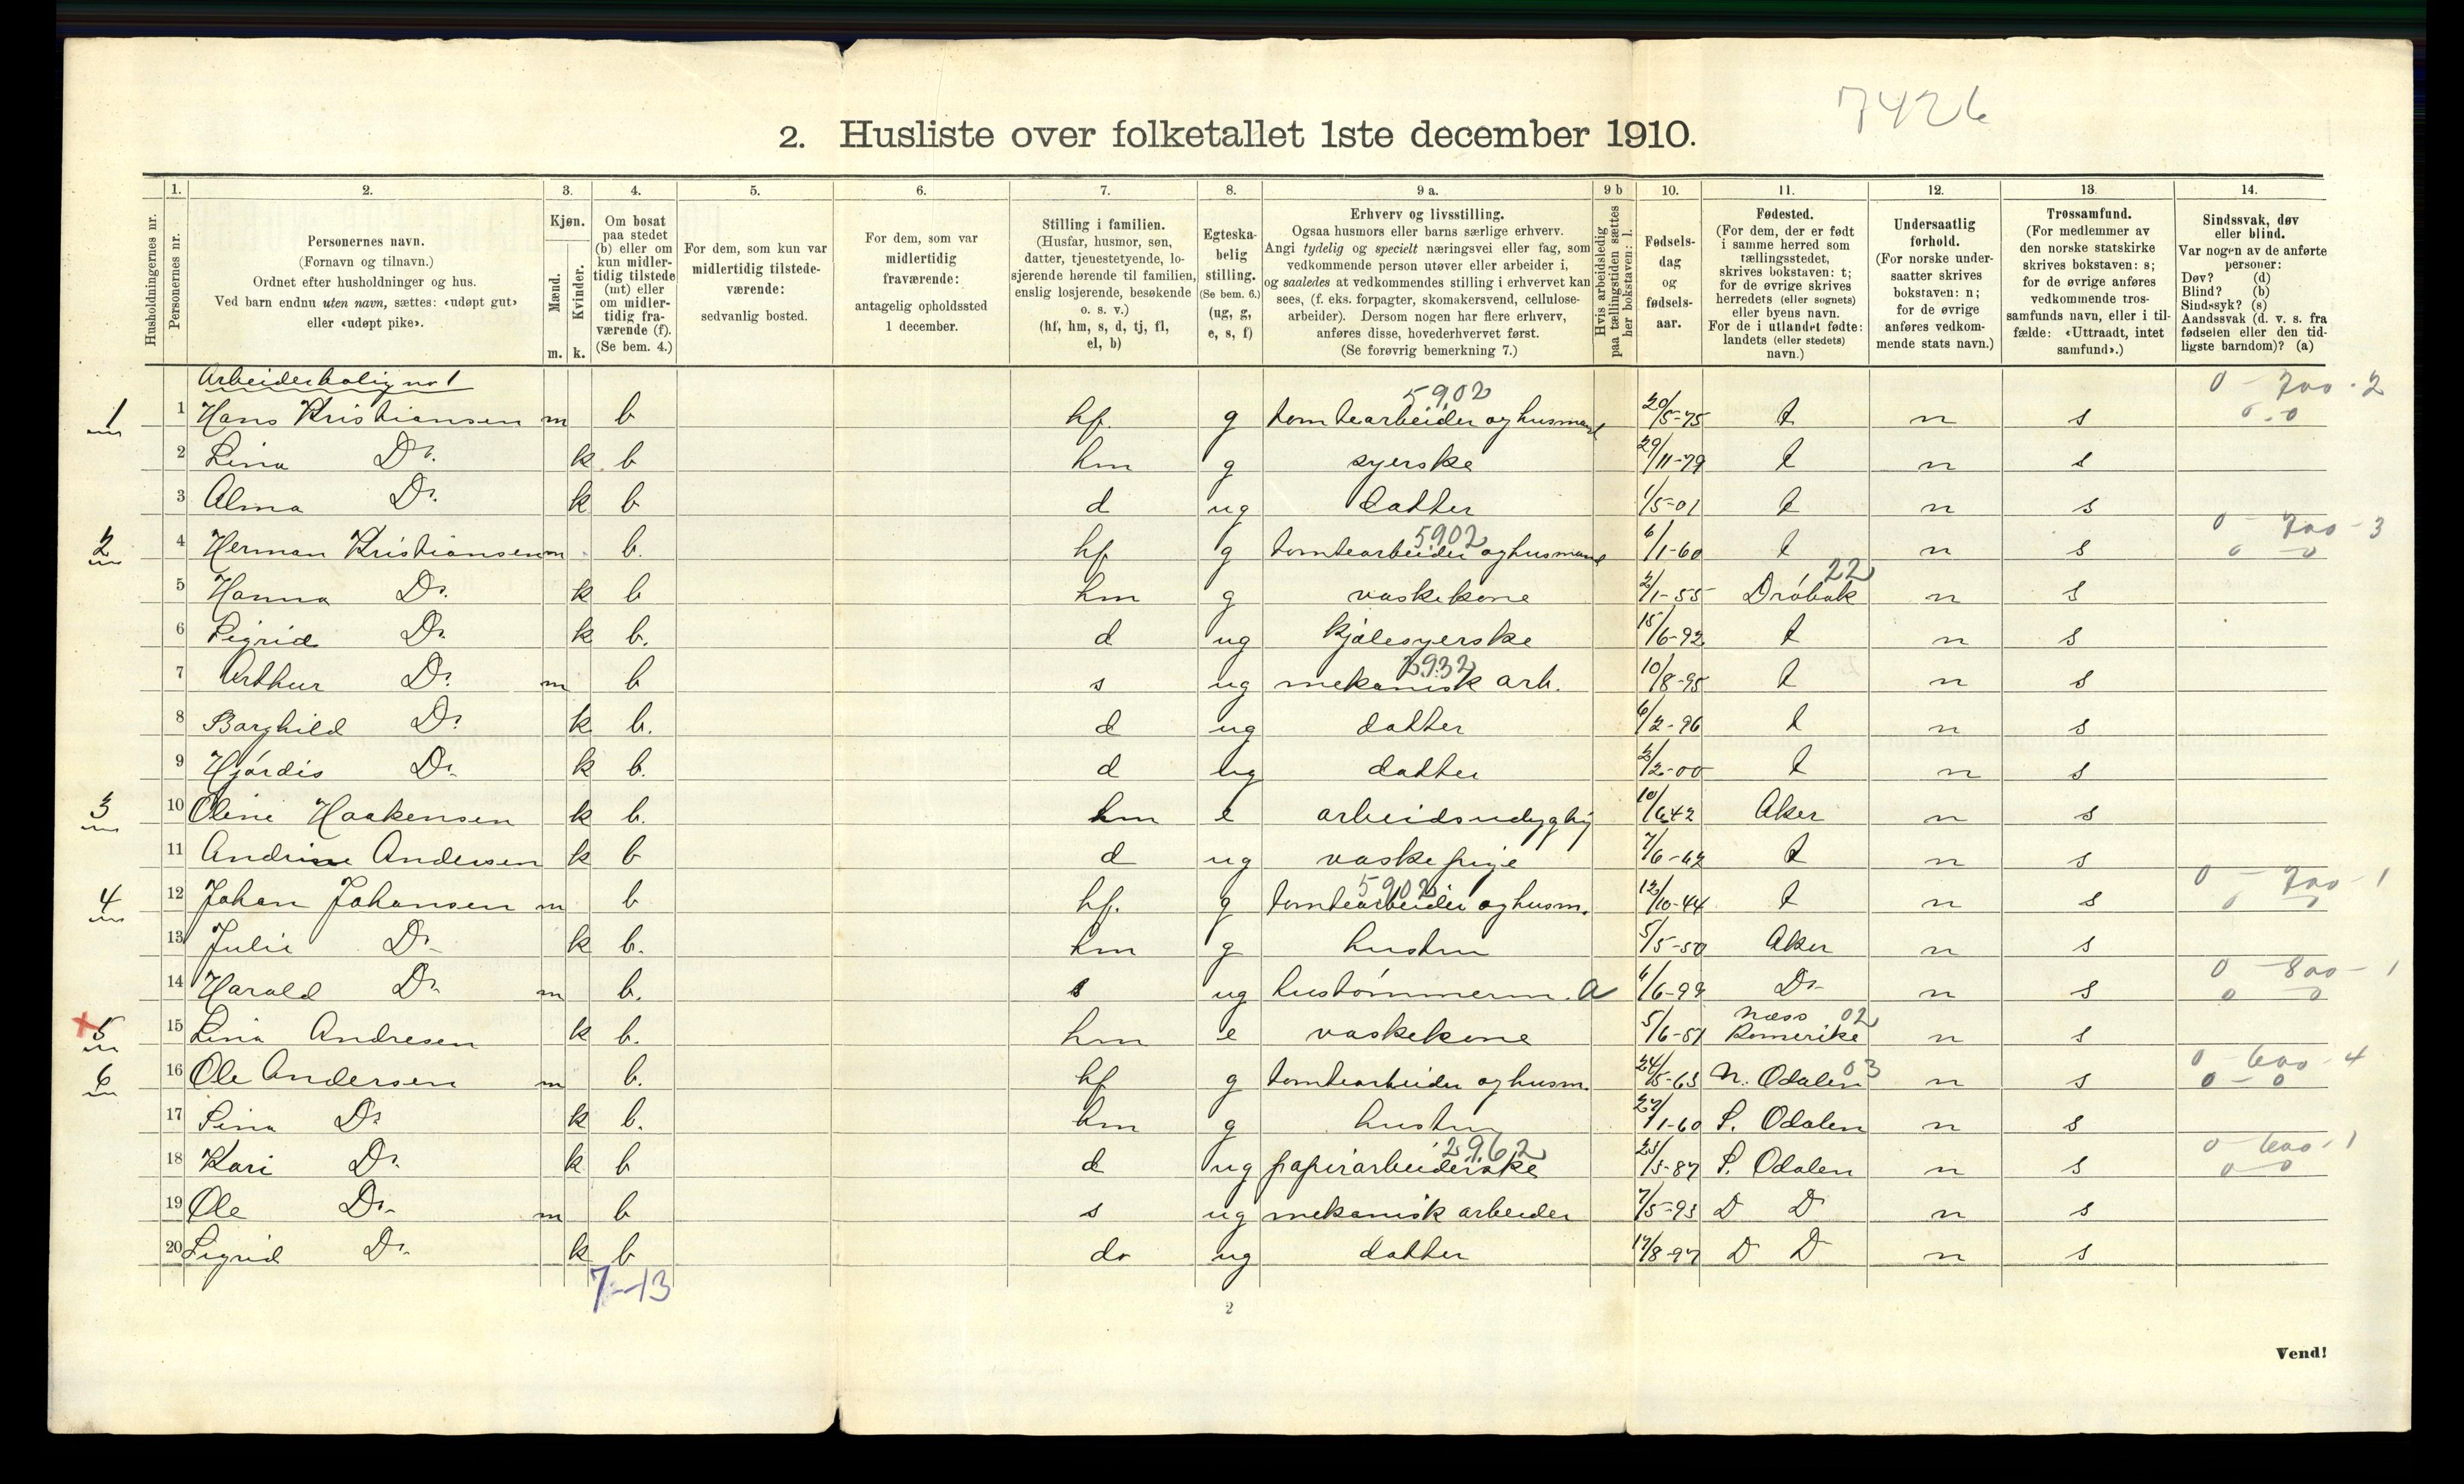 7426
2. Husliste over folketallet 1ste december 1910.
Husholdningernes nr.
1. Personernes nr.
2. Personernes navn.
(Fornavn og tilnavn.)
Ordnet efter husholdninger og hus.
Ved barn endnu uten navn, sættes: «udøpt gut»
eller «udøpt pike».
3. Kjøn.
Mænd. m.
Kvinder. k.
4. Om bosat
paa stedet
(b) eller om
kun midler-
tidig tilstede
(mt) eller
om midler-
tidig fra-
værende (f).
(Se bem. 4.)
5. For dem, som kun var
midlertidig tilstede-
værende:
sedvanlig bosted.
6. For dem, som var
midlertidig
fraværende:
antagelig opholdssted
1 december.
7. Stilling i familien.
(Husfar, husmor, søn,
datter, tjenestetyende, lo-
sjerende hørende til familien,
enslig losjerende, besøkende
o. s. v.)
(hf, hm, s, d, tj, fl,
el, b)
8. Egteska-
belig
stilling.
(Se bem. 6.)
(ug, g,
e, s, f)
9 a. Erhverv og livsstilling.
Ogsaa husmors eller barns særlige erhverv.
Angi tydelig og specielt næringsvei eller fag, som
vedkommende person utøver eller arbeider i,
og saaledes at vedkommendes stilling i erhvervet kan
sees, (f. eks. forpagter, skomakersvend, cellulose-
arbeider). Dersom nogen har flere erhverv,
anføres disse, hovederhvervet først.
(Se forøvrig bemerkning 7.)
9 b Hvis arbeidsledig
paa tællingstiden sættes
her bokstaven: l.
10. Fødsels-
dag
og
fødsels-
aar.
11. Fødested.
(For dem, der er født
i samme herred som
tællingsstedet,
skrives bokstaven: t;
for de øvrige skrives
herredets (eller sognets)
eller byens navn.
For de i utlandet fødte:
landets (eller stedets)
navn.)
12. Undersaatlig
forhold.
(For norske under-
saatter skrives
bokstaven: n;
for de øvrige
anføres vedkom-
mende stats navn.)
13. Trossamfund.
(For medlemmer av
den norske statskirke
skrives bokstaven: s;
for de øvrige anføres
vedkommende tros-
samfunds navn, eller i til-
fælde: «Uttraadt, intet
samfund».)
14. Sindssvak, døv
eller blind.
Var nogen av de anførte
personer:
Døv? (d)
Blind? (b)
Sindssyk? (s)
Aandssvak (d. v. s. fra
fødselen eller den tid-
ligste barndom)? (a)
Arbeiderbolig no 1
5902 0 - 700 - 2
1 1 Hans Kristiansen m b hf. g tomtearbeider og husmand 20/5-75 t n s 0 - 0
2 Lina Do. k b hm g syerske 29/11-79 t n s
3 Alma Do. k b d ug datter 1/5-01 t n s
5902 0 - 700 - 3
2 4 Herman Kristiansen m b. hf g tomtearbeider og husmand 6/1-60 t n s 0 - 0
22
5 Hanna Do. k b hm g vaskekone 2/1-55 Dröbak n s
6 Sigrid Do. k b. d ug kjolesyerske 15/6-92 t n s
2932
7 Arthur Do. m b s ug mekanisk arb. 10/8-95 t n s
8 Borghild Do. k b. d ug datter 6/2-96 t n s
9 Hjördis Do. k b. d ug datter 2/2-00 t n s
3 10 Oline Haakensen k b. hm e arbeidsudygtig 10/6 42 Aker n s
11 Andrine Andersen k b d ug vaskepige 7/6-62 t n s
5902 0 - 700 - 1
4 12 Johan Johansen m b hf. g tomtearbeider og husm. 12/10-44 t n s 0 0
13 Julie Do k b. hm g hustru 5/5-50 Aker n s
0 - 800 - 1
14 Harald Do. m b. s ug hustömmerm. a 6/6-92 Do n s 0 0
Næss 02
x 5 15 Lina Andresen k b. hm e vaskekone 5/6-51 Romerike n s
03 0 - 600 - 4
6 16 Ole Andersen m b. hf g tomtearbeider og husm. 24/5-63 N. Odalen n s 0 - 0
17 Lina Do k b. hm g hustru 27/1-60 S. Odalen n s
2962 0 - 600 - 1
18 Kari Do. k b d ug papirarbeiderske 23/3-87 S. Odalen n s 0 0
19 Ole Do. m b s ug mekanisk arbeider 7/5-93 D D n s
20 Sigrid Do. k b do ug datter 17/8-97 D D n s
7-13
2
Vend!